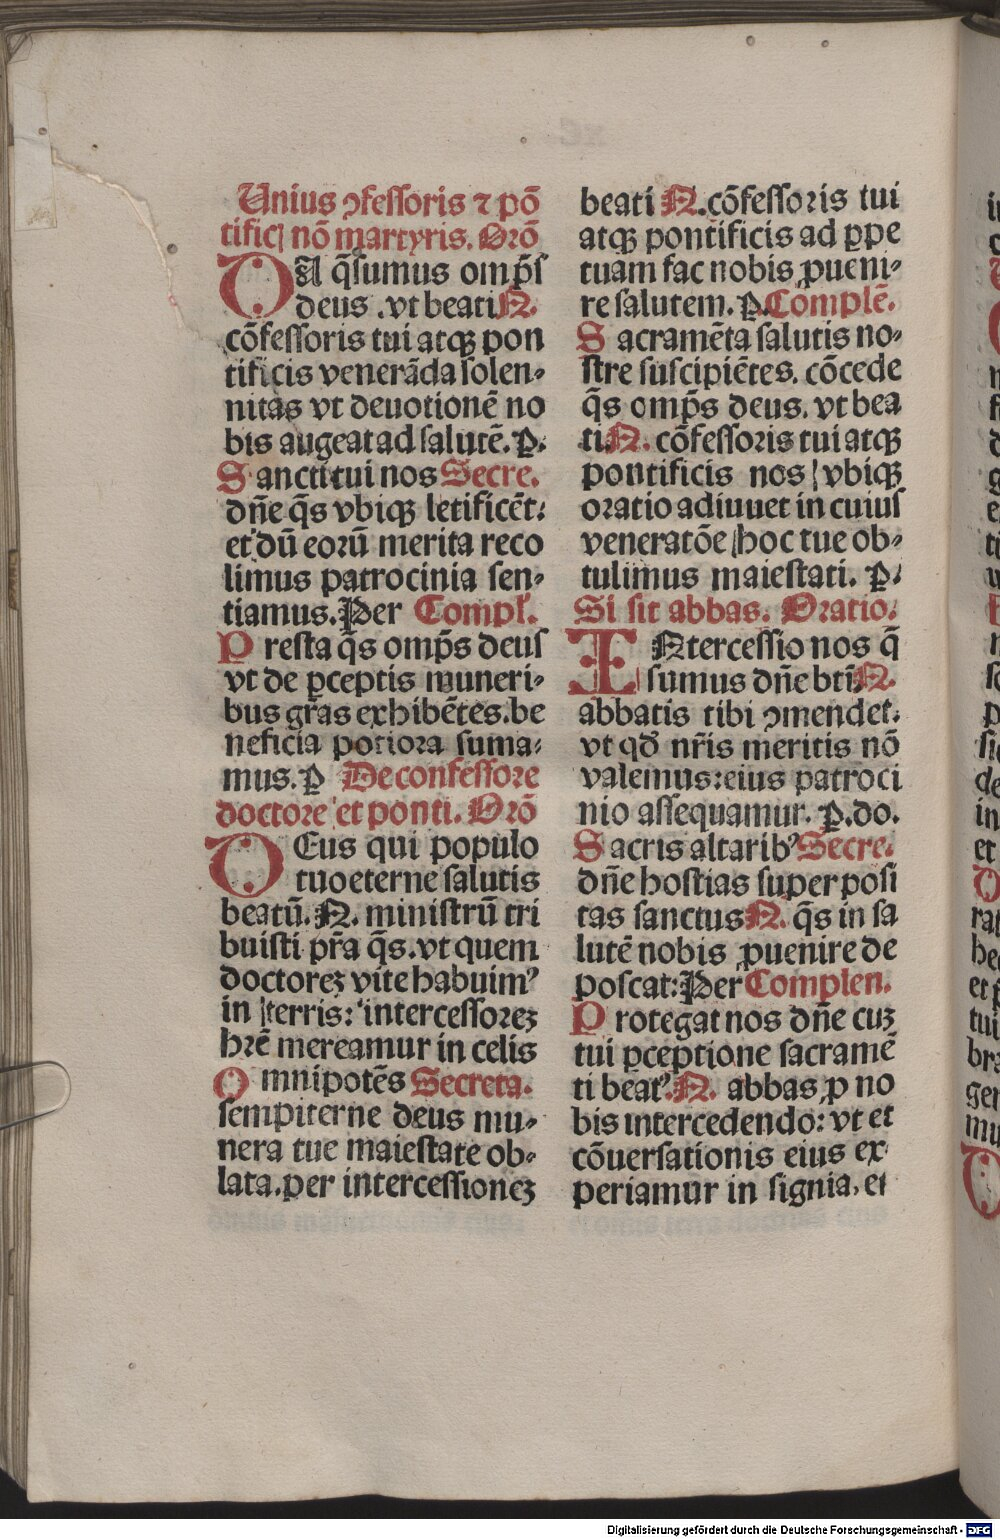 Unius ꝯfessoris ⁊ põ
tific nõ martyris. Orõ
DA q̃sumus omp̃s
deus .vt beati N.
cõfessoris tui atqꝫ pon
tificis venerãda solen-
nitas vt deuotionẽ no
bis augeat ad salutẽ. P.
Sancti tui nos Secre.
dñe q̃s vbiqꝫ letificẽt:
et dũ eorũ merita reco
limus patrocinia sen-
tiamus. Per Compl'.
Presta q̃s omp̃s deus
vt de ꝑceptis muneri-
bus gr̃as exhibẽtes. be
neficia potiora suma-
mus. P De confessore
doctore et ponti. Orõ
DEus qui populo
tuo eterne salutis
beatũ. N. ministrũ tri
buisti pr̃a q̃s. vt quem
doctoreꝫ vite habuimꝰ
in terris: intercessoreꝫ
hr̃e mereamur in celis
Omnipotẽs Secreta.
sempiterne deus mu-
nera tue maiestate ob-
lata. per intercessioneꝫ
beati N. cõfessoris tui
atqꝫ pontificis ad ꝑpe
tuam fac nobis ꝓueni-
re salutem. P. Complẽ.
Sacramẽta salutis no-
stre suscipiẽtes. cõcede
q̃s omp̃s deus. vt bea
ti N. cõfessoris tui atqꝫ
pontificis nos vbiqꝫ
oratio adiuuet in cuius
veneratõe hoc tue ob-
tulimus maiestati. P.
Si sit abbas. Oratio.
INtercessio nos q̃
sumus dñe bti N.
abbatis tibi ꝯmendet.
vt qđ nr̃is meritis nõ
valemus: eius patroci
nio assequamur. P. do.
Sacris altaribꝰ Secre.
dñe hostias super posi
tas sanctus N. q̃s in sa
lutẽ nobis ꝓuenire de
poscat: Per Complen.
Protegat nos dñe cuꝫ
tui ꝑceptione sacramẽ
ti beatꝰ. N. abbas ꝓ no
bis intercedendo: vt et
cõuersationis eius ex
periamur in signia. et
Digitalisierung gefördert durch die Deutsche Forschungsgemeinschaft - DFG